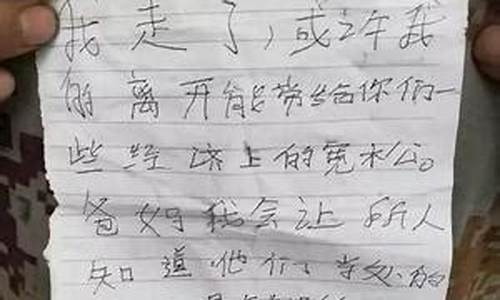 我走了，或许我
的离开能带给你们一
些经济上的宽松。
爸妈我会让所人
知道他们的